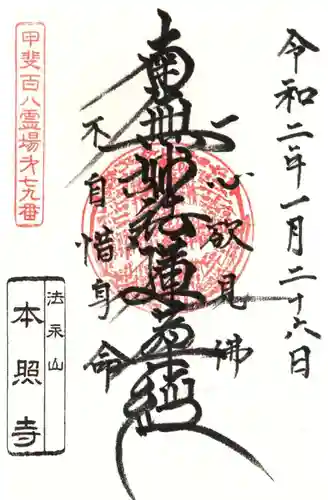 令和二年一月二十六日
一心欲見佛
南無妙法蓮華経
不自惜身命
甲斐百八霊場第七九番
法永山
本照寺